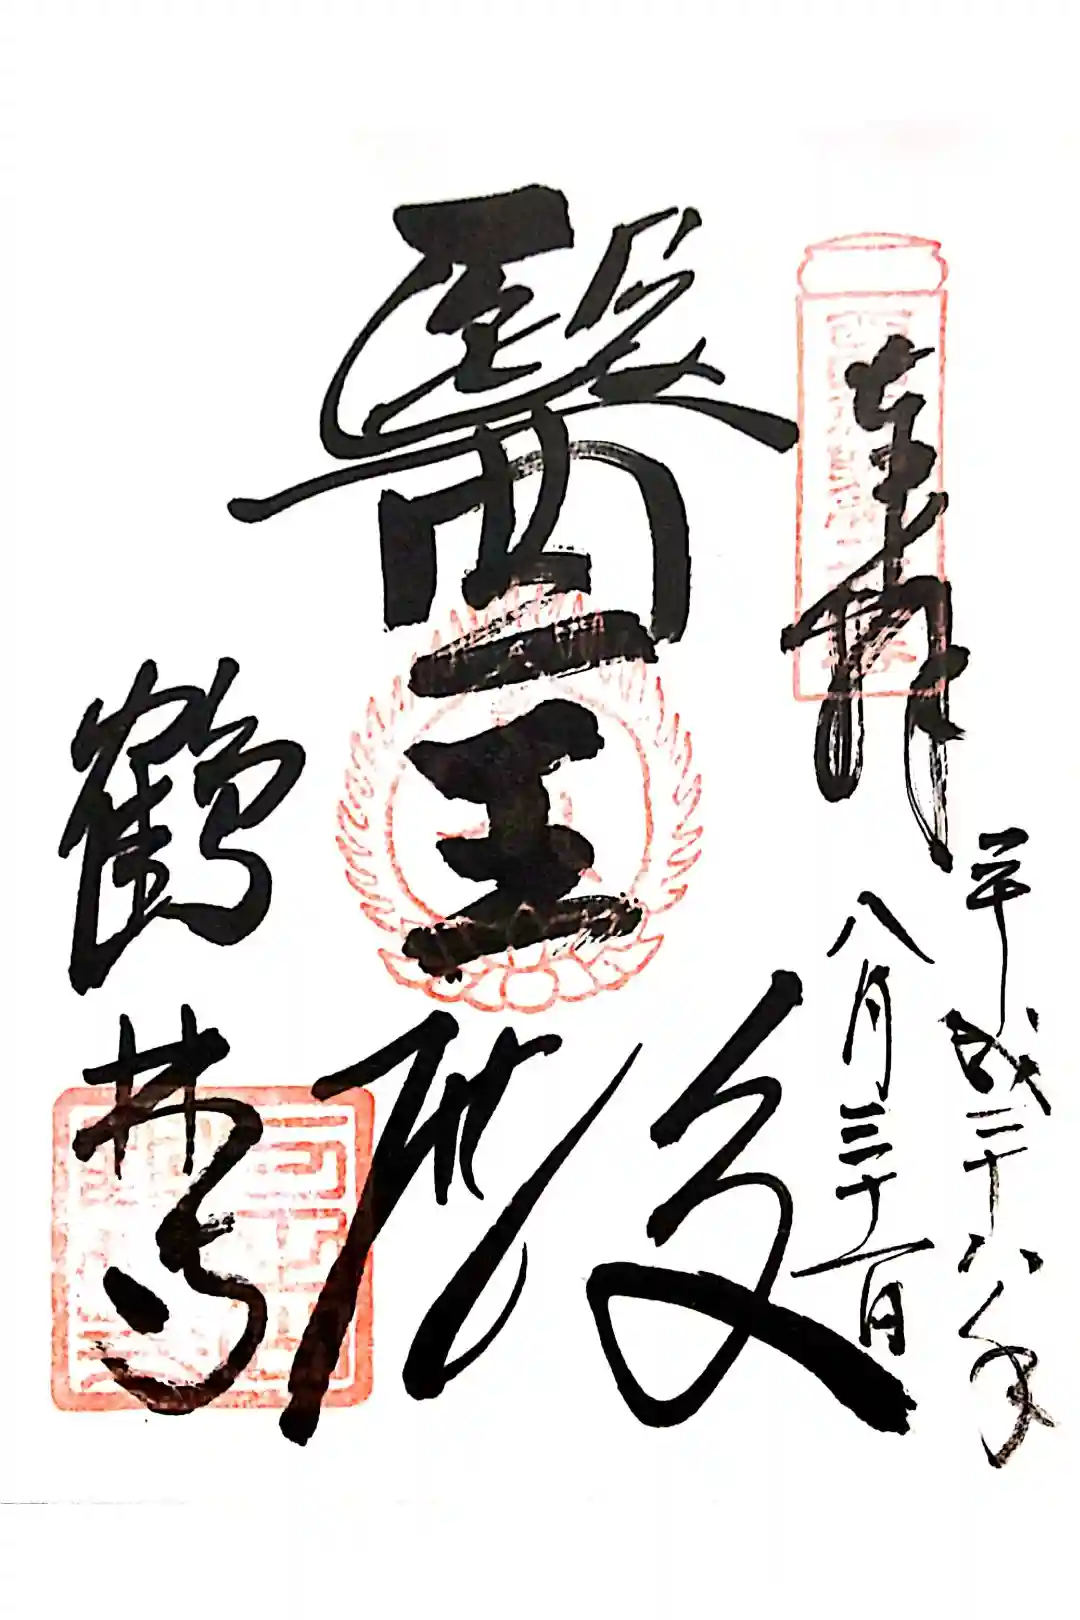 奉拝
平成二十八年
八月三十一日
醫王殿
鶴林寺